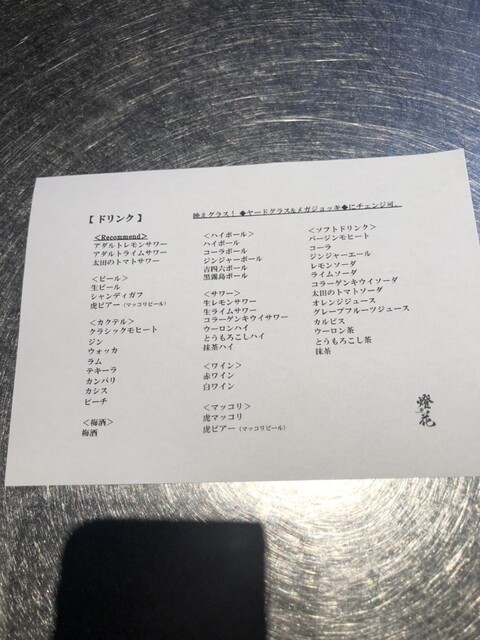 【 ドリンク 】
映えグラス！ ◆ヤードグラス&メガジョッキ◆にチェンジ可。
<Recommend>
アダルトレモンサワー
アダルトライムサワー
太田のトマトサワー
＜ビール＞
生ビール
シャンディガフ
虎ビアー（マッコリビール）
＜カクテル＞
クラシックモヒート
ジン
ウォッカ
ラム
テキーラ
カンパリ
カシス
ピーチ
＜梅酒＞
梅酒
＜ハイボール＞
ハイボール
コーラボール
ジンジャーボール
吉四六ボール
黒霧島ボール
＜サワー＞
生レモンサワー
生ライムサワー
コラーゲンキウイサワー
ウーロンハイ
とうもろこしハイ
抹茶ハイ
＜ワイン＞
赤ワイン
白ワイン
＜マッコリ＞
虎マッコリ
虎ビアー（マッコリビール）
＜ソフトドリンク＞
バージンモヒート
コーラ
ジンジャーエール
レモンソーダ
ライムソーダ
コラーゲンキウイソーダ
太田のトマトソーダ
オレンジジュース
グレープフルーツジュース
カルピス
ウーロン茶
とうもろこし茶
抹茶
燈花